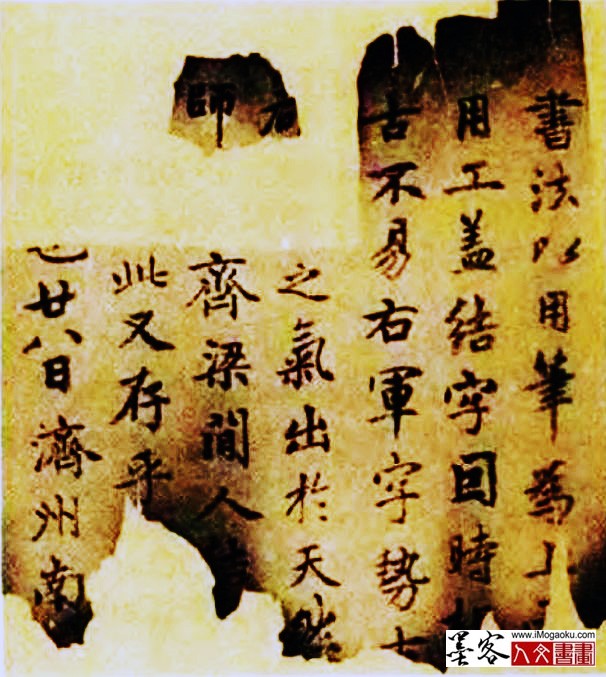 書法以用筆為上
用工盖結字因時
古不易右軍字勢
之氣出於天然
師
齊梁間人
此又存乎
廿八日濟州南
墨客
www.iMogaoku.com
人文書畫